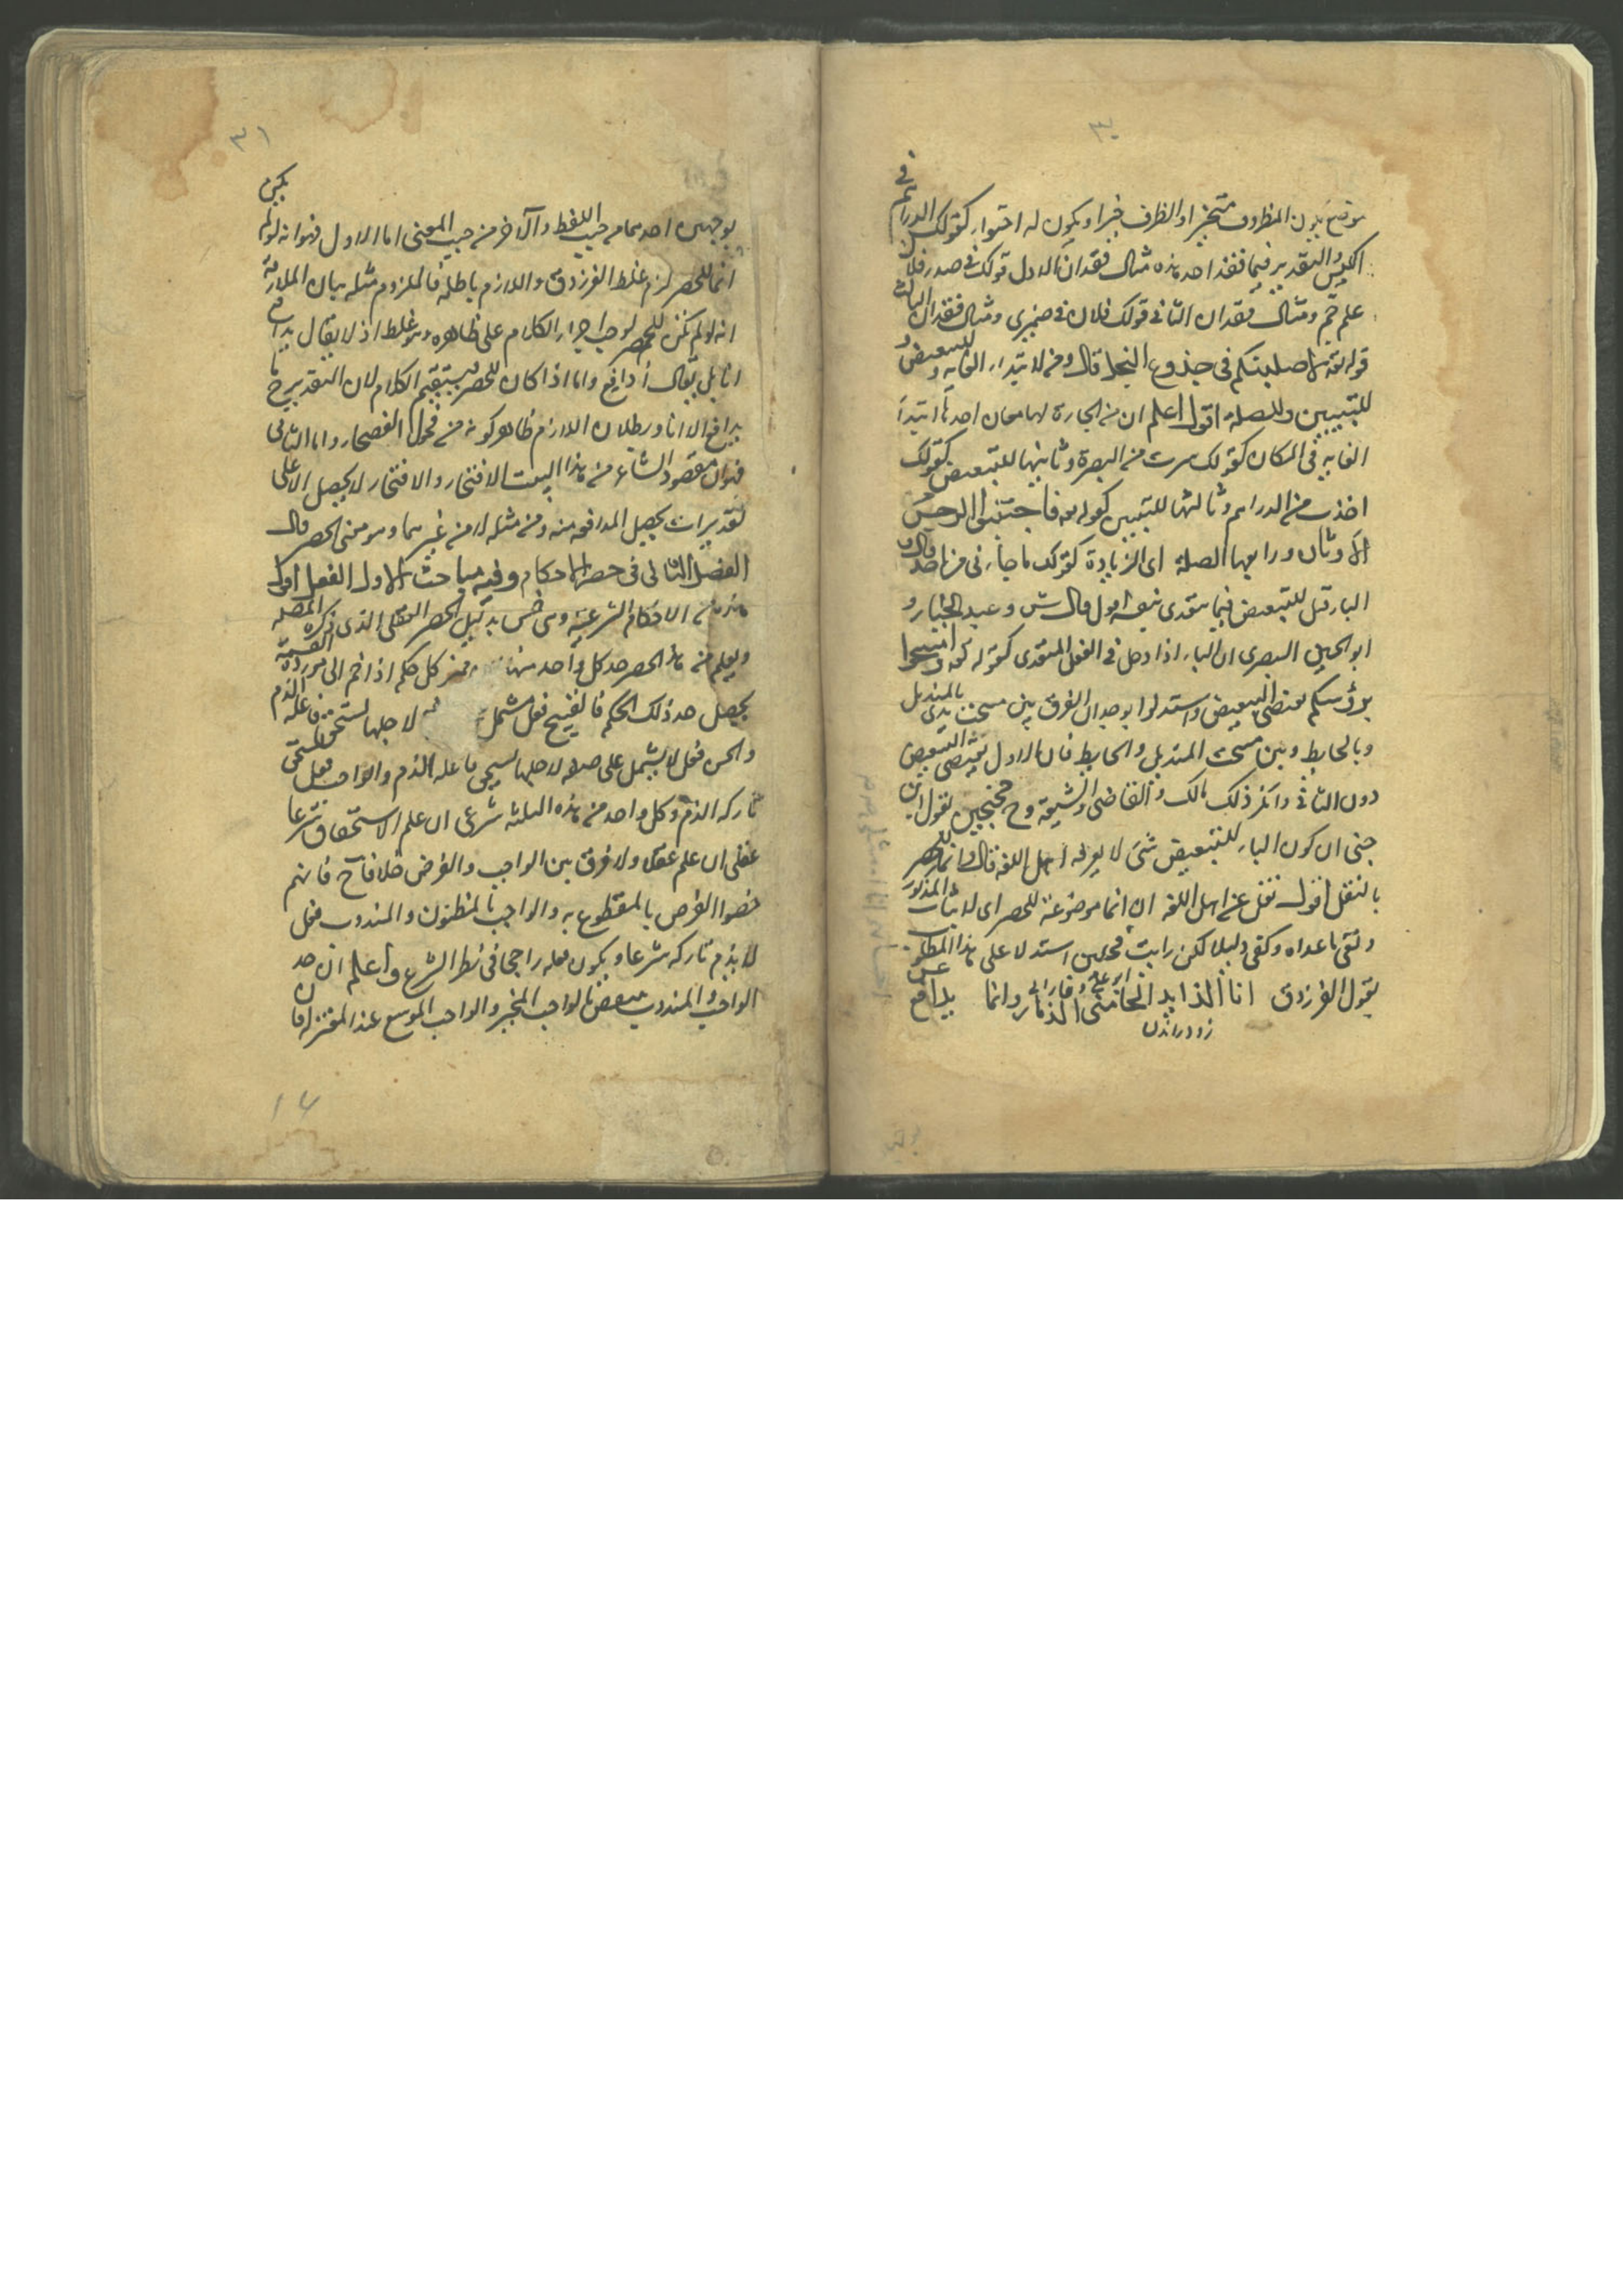 ٣٠
موضع يكون المظروف متحيزا والظرف حيزا ويكون له احتواء كقولك الدراهم في
الكيس والتقدير فيما فقد احد هذه مثال فقدان الاول قولك في صدر فلان
علم جم ومثال فقدان الثاني قولك فلان في ضميري ومثال فقدان الثالث
قوله تعه لاصلبنكم في جذوع النخل قال ومن لابتداء الغاية وللتبعيض و
للتبيين وللصلة اقول اعلم ان من الجارة لها معان احدها ابتداء
الغاية في المكان كقولك سرت من البصرة وثانيها للتبعيض كقولك
اخذت من الدراهم وثالثها للتبيين كقوله تعه فاجتنبوا الرجس من
الاوثان ورابعها الصلة اى الزيادة كقولك ما جاءنى من احد قال و
الباء قيل للتبعيض فيما يتعدى بنفسه اقول قال ش وعبد الجبار و
ابو الحسين البصرى ان الباء اذا دخل في الفعل المتعدى كقوله تعه وامسحوا
برؤسكم يقتضى التبعيض واستدلوا بوجدان الفرق بين مسحت يدى بالمنديل
وبالحايط وبين مسحت المنديل والحايط فان الاول يقتضى التبعيض
دون الثانى وانكر ذلك مالك والقاضى والشيعة وح محتجين بقول ابن
جنى ان كون الباء للتبعيض شئ لا يعرفه اهل اللغة قال وانما للحصر
بالنقل اقول نقل عن اهل اللغة ان انما موضوعة للحصر اى لاثبات المذكور
ونفى ما عداه وكفى دليلا لكن رايت استدلا على هذا المطلوب
بقول الفرزدق انا الذايد الحامى الذمار وانما يدافع عن
٣١
بوجهين احدهما من حيث اللفظ والآخر من حيث المعنى اما الاول فهو انه لو لم يكن
انما للحصر لزم غلط الفرزدق واللازم باطل فالملزوم مثله بيان الملازمة
انه لو لم تكن للحصر لوجب اجراء الكلام على ظاهره وهو غلط اذ لا يقال يدافع
انا بل يقال أدافع واما اذا كان للحصر يستقيم الكلام لان التقدير ح ما
يدافع الا انا وبطلان اللازم ظاهر كونه من فحول الفصحاء واما الثانى
فهو ان مقصود الشاعر من هذا البيت الافتخار والافتخار لا يحصل الا على
تقدير ان يحصل المدافعة منه ومن مثله لا من غيرهما وهو معنى الحصر قال
الفصل الثانى فى حصر الاحكام وفيه مباحث الاول الفعل اقول
هذه الاحكام الشرعية وهى خمس بدليل الحصر العقلى الذى ذكره المصنف
ويعلم من هذا الحصر حد كل واحد منها كل حكم اذا ضم الى مورد القسمة
يحصل حد ذلك الحكم فالقبيح فعل يشتمل لاجلها يستحق فاعله الذم
والحسن فعل لا يشتمل على صفة لاجلها يستحق فاعله الذم والواجب فعل يستحق
تاركه الذم وكل واحد من هذه الثلثة شرعى ان علم الاستحقاق شرعا
عقلى ان علم عقلا ولا فرق بين الواجب والفرض خلافا لح فانهم
خصوا الفرض بالمقطوع به والواجب بالمظنون والمندوب فعل
لا يذم تاركه شرعا ويكون فعله راجحا فى نظر الشرع واعلم ان حد
الواجب والمندوب ينتقض بالواجب المخير والواجب الموسع عند المعتزلة فان
١٦